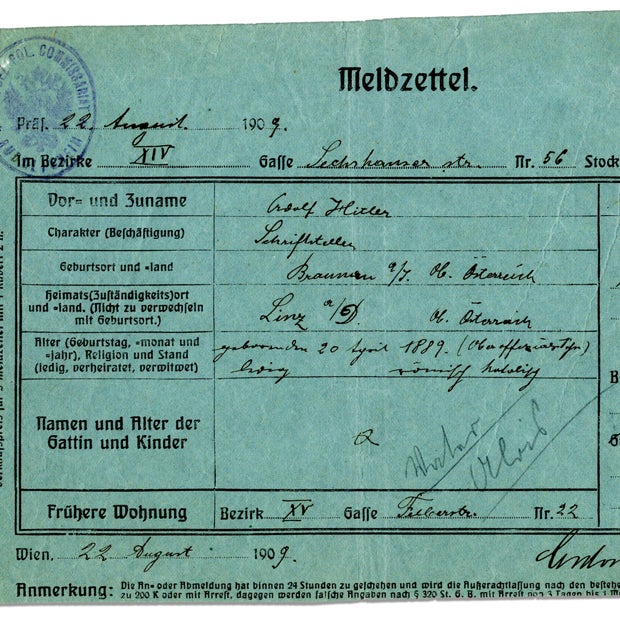 POL. COMMISSARIAT
Meldzettel.
Präs. 22. August 1909.
Am Bezirke XIV Gasse Sechshauser str. Nr. 56 Stock
Vor= und Zuname Adolf Hitler
Charakter (Beschäftigung) Schriftsteller
Geburtsort und =land Braunau a/I. Ob. Österreich
Heimats(Zuständigkeits)ort
und =land. (Nicht zu verwechseln
mit Geburtsort.) Linz a/D. Ob. Österreich
Alter (Geburtstag, =monat und
=jahr), Religion und Stand
(ledig, verheiratet, verwitwet) geboren den 20 April 1889.
ledig römisch katolisch
Namen und Alter der
Gattin und Kinder
Vater
Alois
Frühere Wohnung Bezirk XV Gasse Felberstr. Nr. 22
Wien, 22 August 1909.
Anmerkung: Die An= oder Abmeldung hat binnen 24 Stunden zu geschehen und wird die Außerachtlassung nach den bestehe
zu 200 K oder mit Arrest, dagegen werden falsche Angaben nach § 320 St. G. B. mit Arrest von 3 Tagen bis 1 M